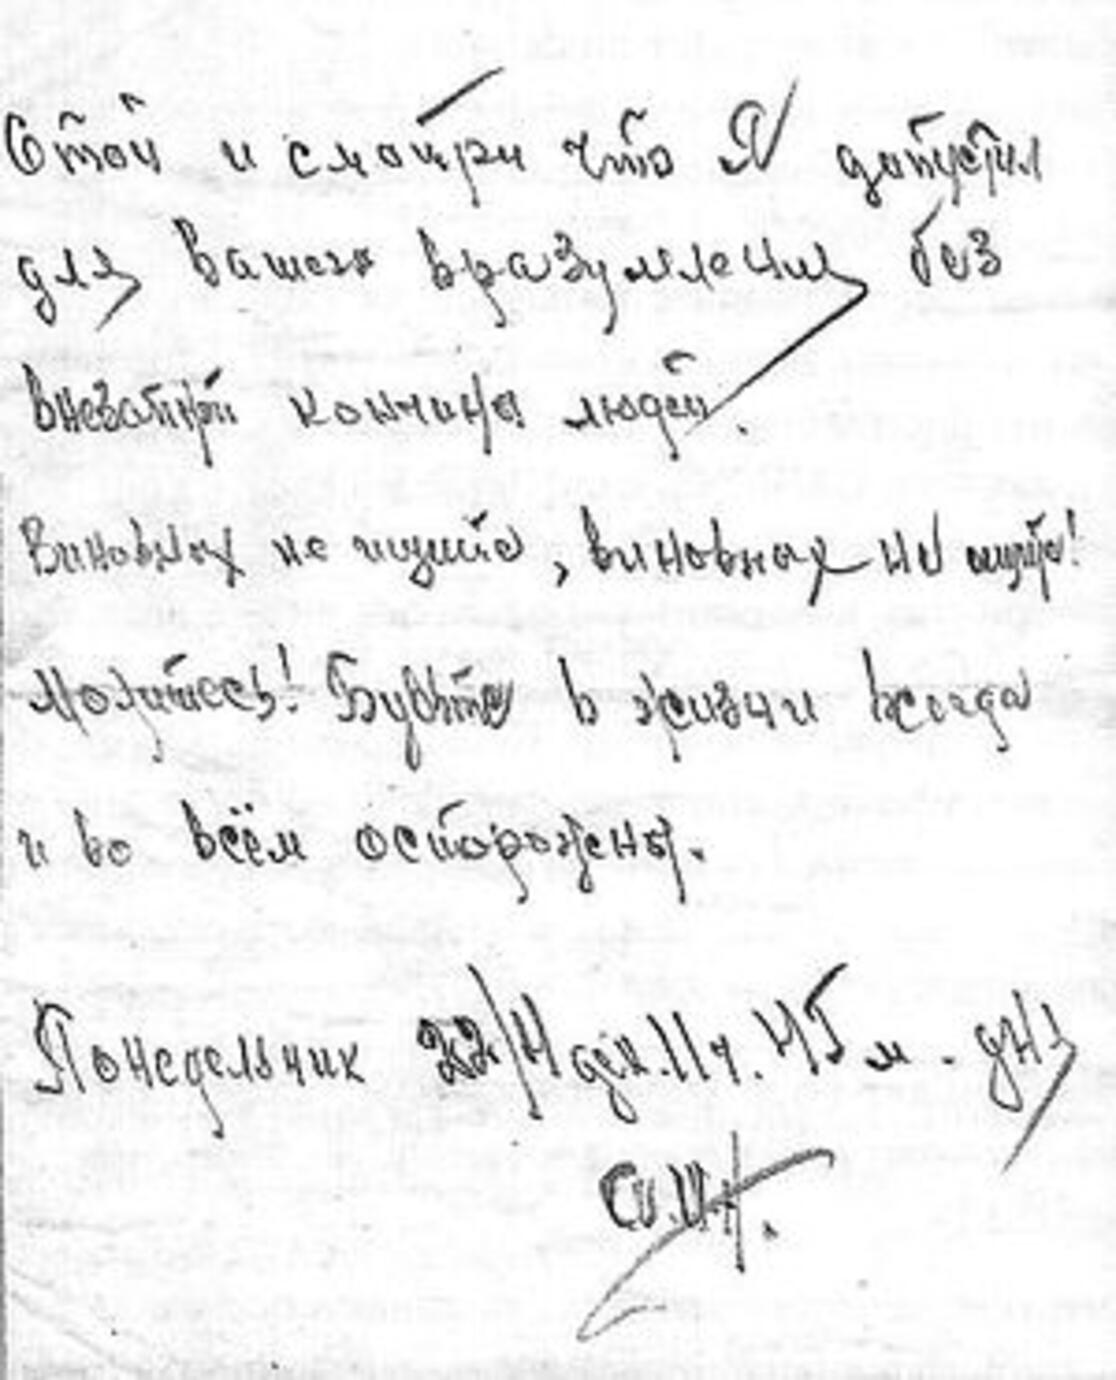 Стой и смотри что Я допустил
для вашего вразумления без
внезапной кончины людей.
Виновных не ищите, виновных не ищите!
Молитесь! Будьте в жизни всегда
и во всём осторожны.
Понедельник 22/4 дек. 11 ч. 45 м. дня